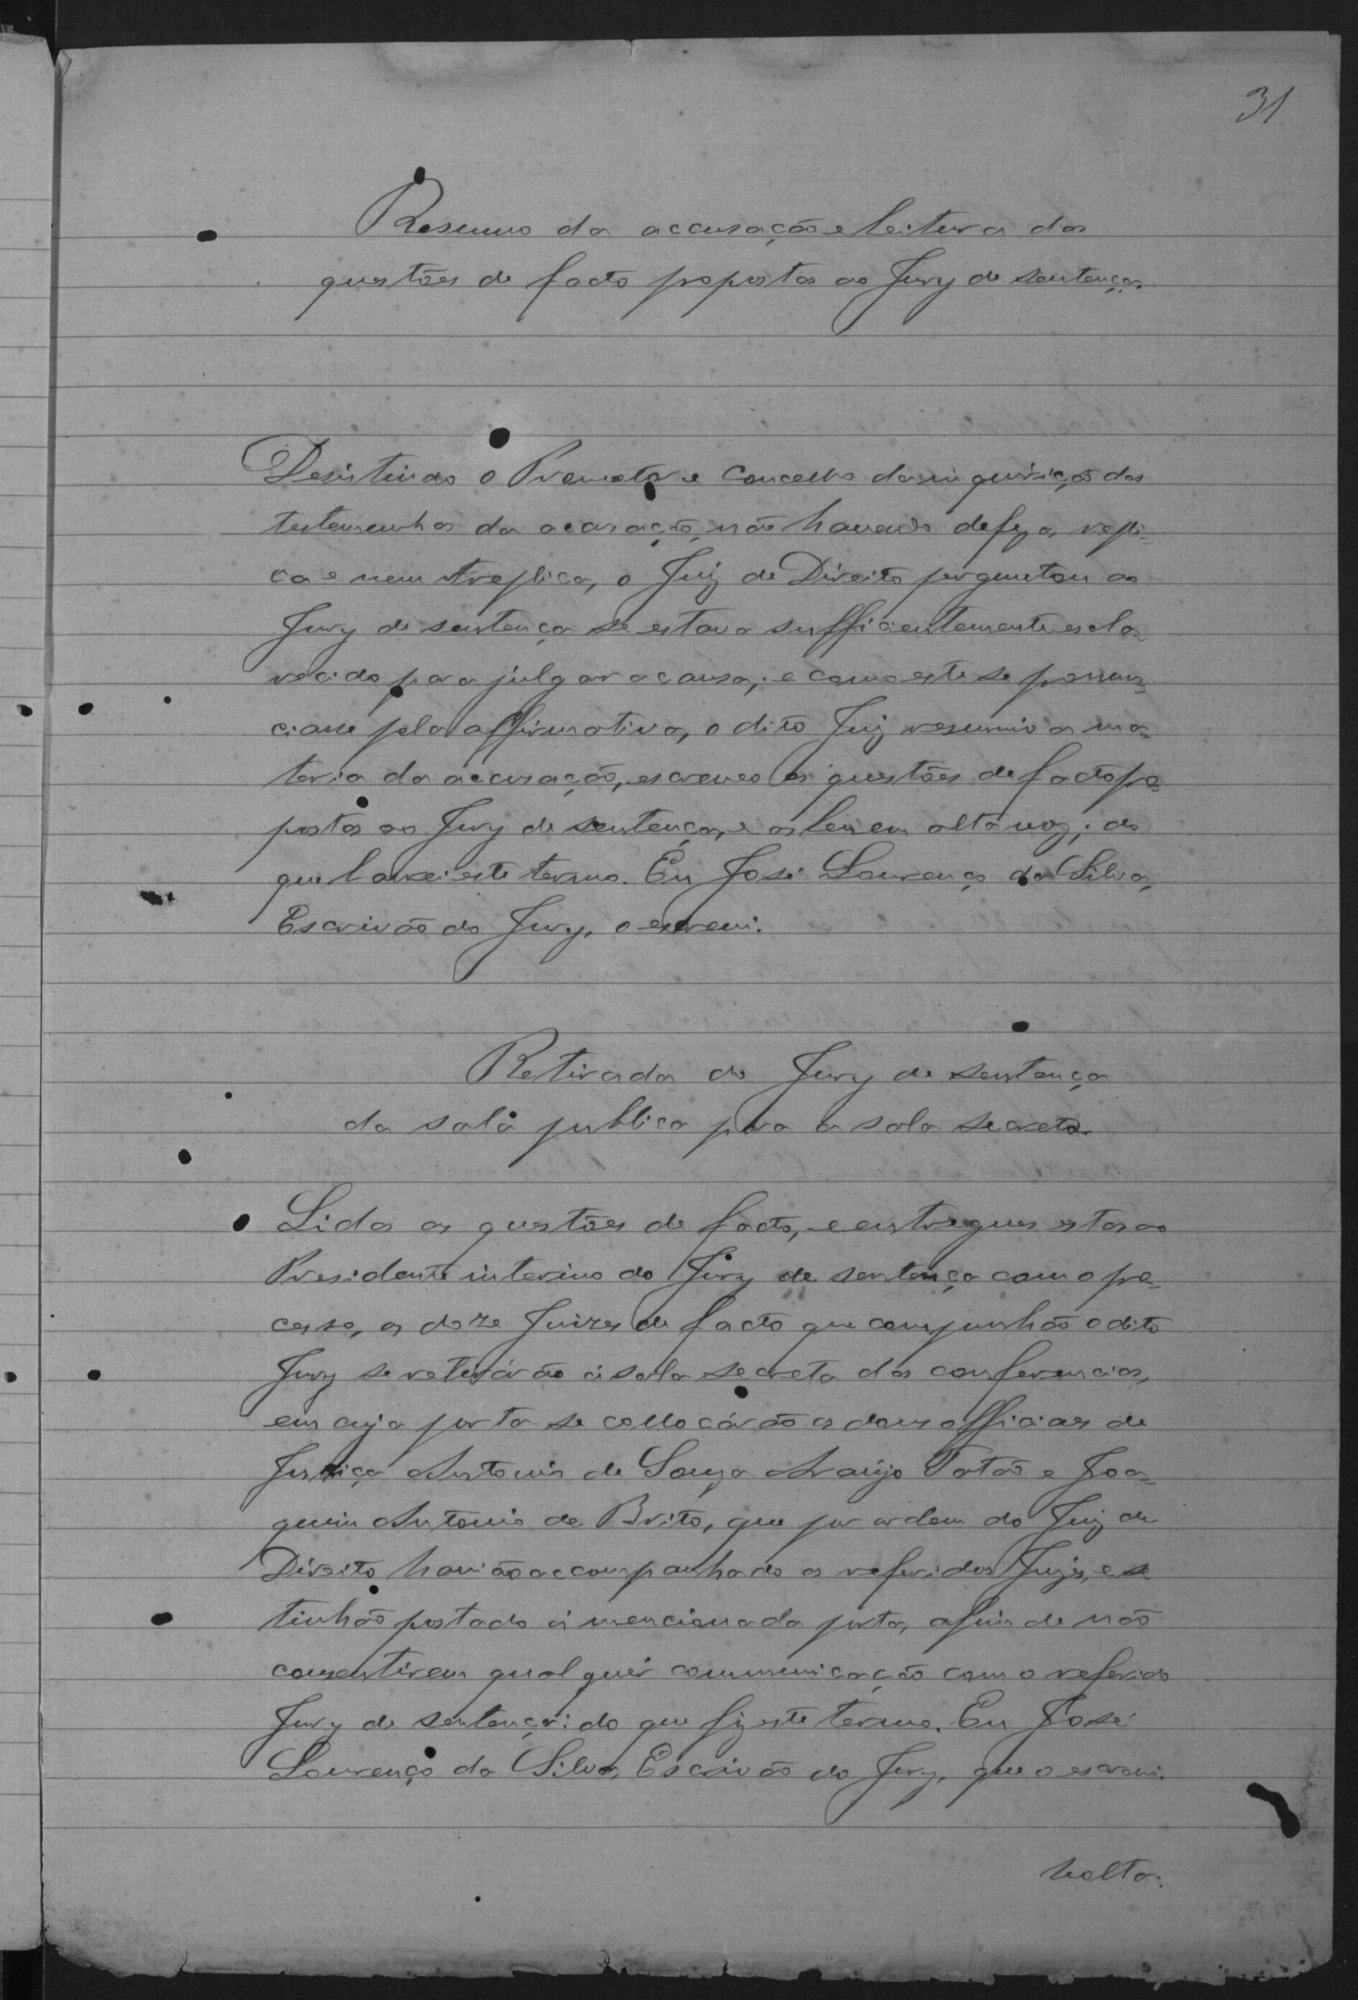 31
Resumo da accusação e leitura das
questões de facto propostas ao Jury de sentença.
Desistindo o Promotor e Concelho da inquirição das
testemunhas da acusação, não havendo defeza, repli-
ca e nem treplica, o Juiz de Direito perguntou ao
Jury de sentença se estava sufficientemente escla-
recido para julgar a causa; e como este se pronun-
ciasse pela affirmativa, o dito Juiz resumio a ma-
teria da accusação, escreveo as questões de facto pro-
postas ao Jury de sentença, e as leu em alta voz; do
que lavrei este termo. Eu José Lourenço da Silva,
Escrivão do Jury, o escrevi.
Retirada do Jury de sentença
da sala publica para a sala secreta.
Lidas as questões de facto, e entregues estas ao
Presidente interino do Jury de sentença com o pro-
cesso, os doze Juizes de facto que compunhão o dito
Jury se retirárão á sala secreta das conferencias,
em cuja porta se collocárão os dous officiaes de
Justiça Antonio de Souza Araujo Tatão e Joa-
quim Antonio de Brito, que por ordem do Juiz de
Direito havião accompanhado os referidos Juizes, e se
tinhão postado á mencionada porta, afim de não
consentirem qualquer communicação com o referido
Jury de sentença: do que fiz este termo. Eu José
Lourenço da Silva, Escrivão do Jury, que o escrevi.
Volta.